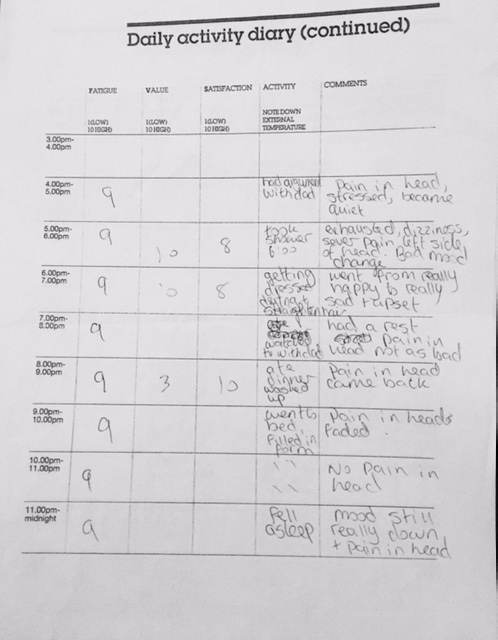 Daily activity diary (continued)
FATIGUE VALUE SATISFACTION ACTIVITY COMMENTS
1(LOW) 1(LOW) 1(LOW) NOTE DOWN
10 HIGH) 10 HIGH) 10 HIGH) EXTERNAL
TEMPERATURE
3.00pm-
4.00pm
4.00pm-
5.00pm
9
had argument
with dad
Pain in head,
stressed, became
quiet
5.00pm-
6.00pm
9 10 8
took
shower
6:00
exhausted, dizziness,
sever pain left side
of head. Bad mood
change
6.00pm-
7.00pm
9 10 8
getting
dressed
dry hair +
straighten hair
went from really
happy to really
sad + upset
7.00pm-
8.00pm
9
watched
tv with dad
had a rest
Pain in
head not as bad
8.00pm-
9.00pm
9 3 10
ate
dinner
washed
up
Pain in head
came back
9.00pm-
10.00pm
9
went to
bed,
filled in
form
Pain in heads
faded.
10.00pm-
11.00pm
9
\\
\\
No Pain in
head
11.00pm-
midnight
9
fell
asleep
mood still
really down
+ pain in head